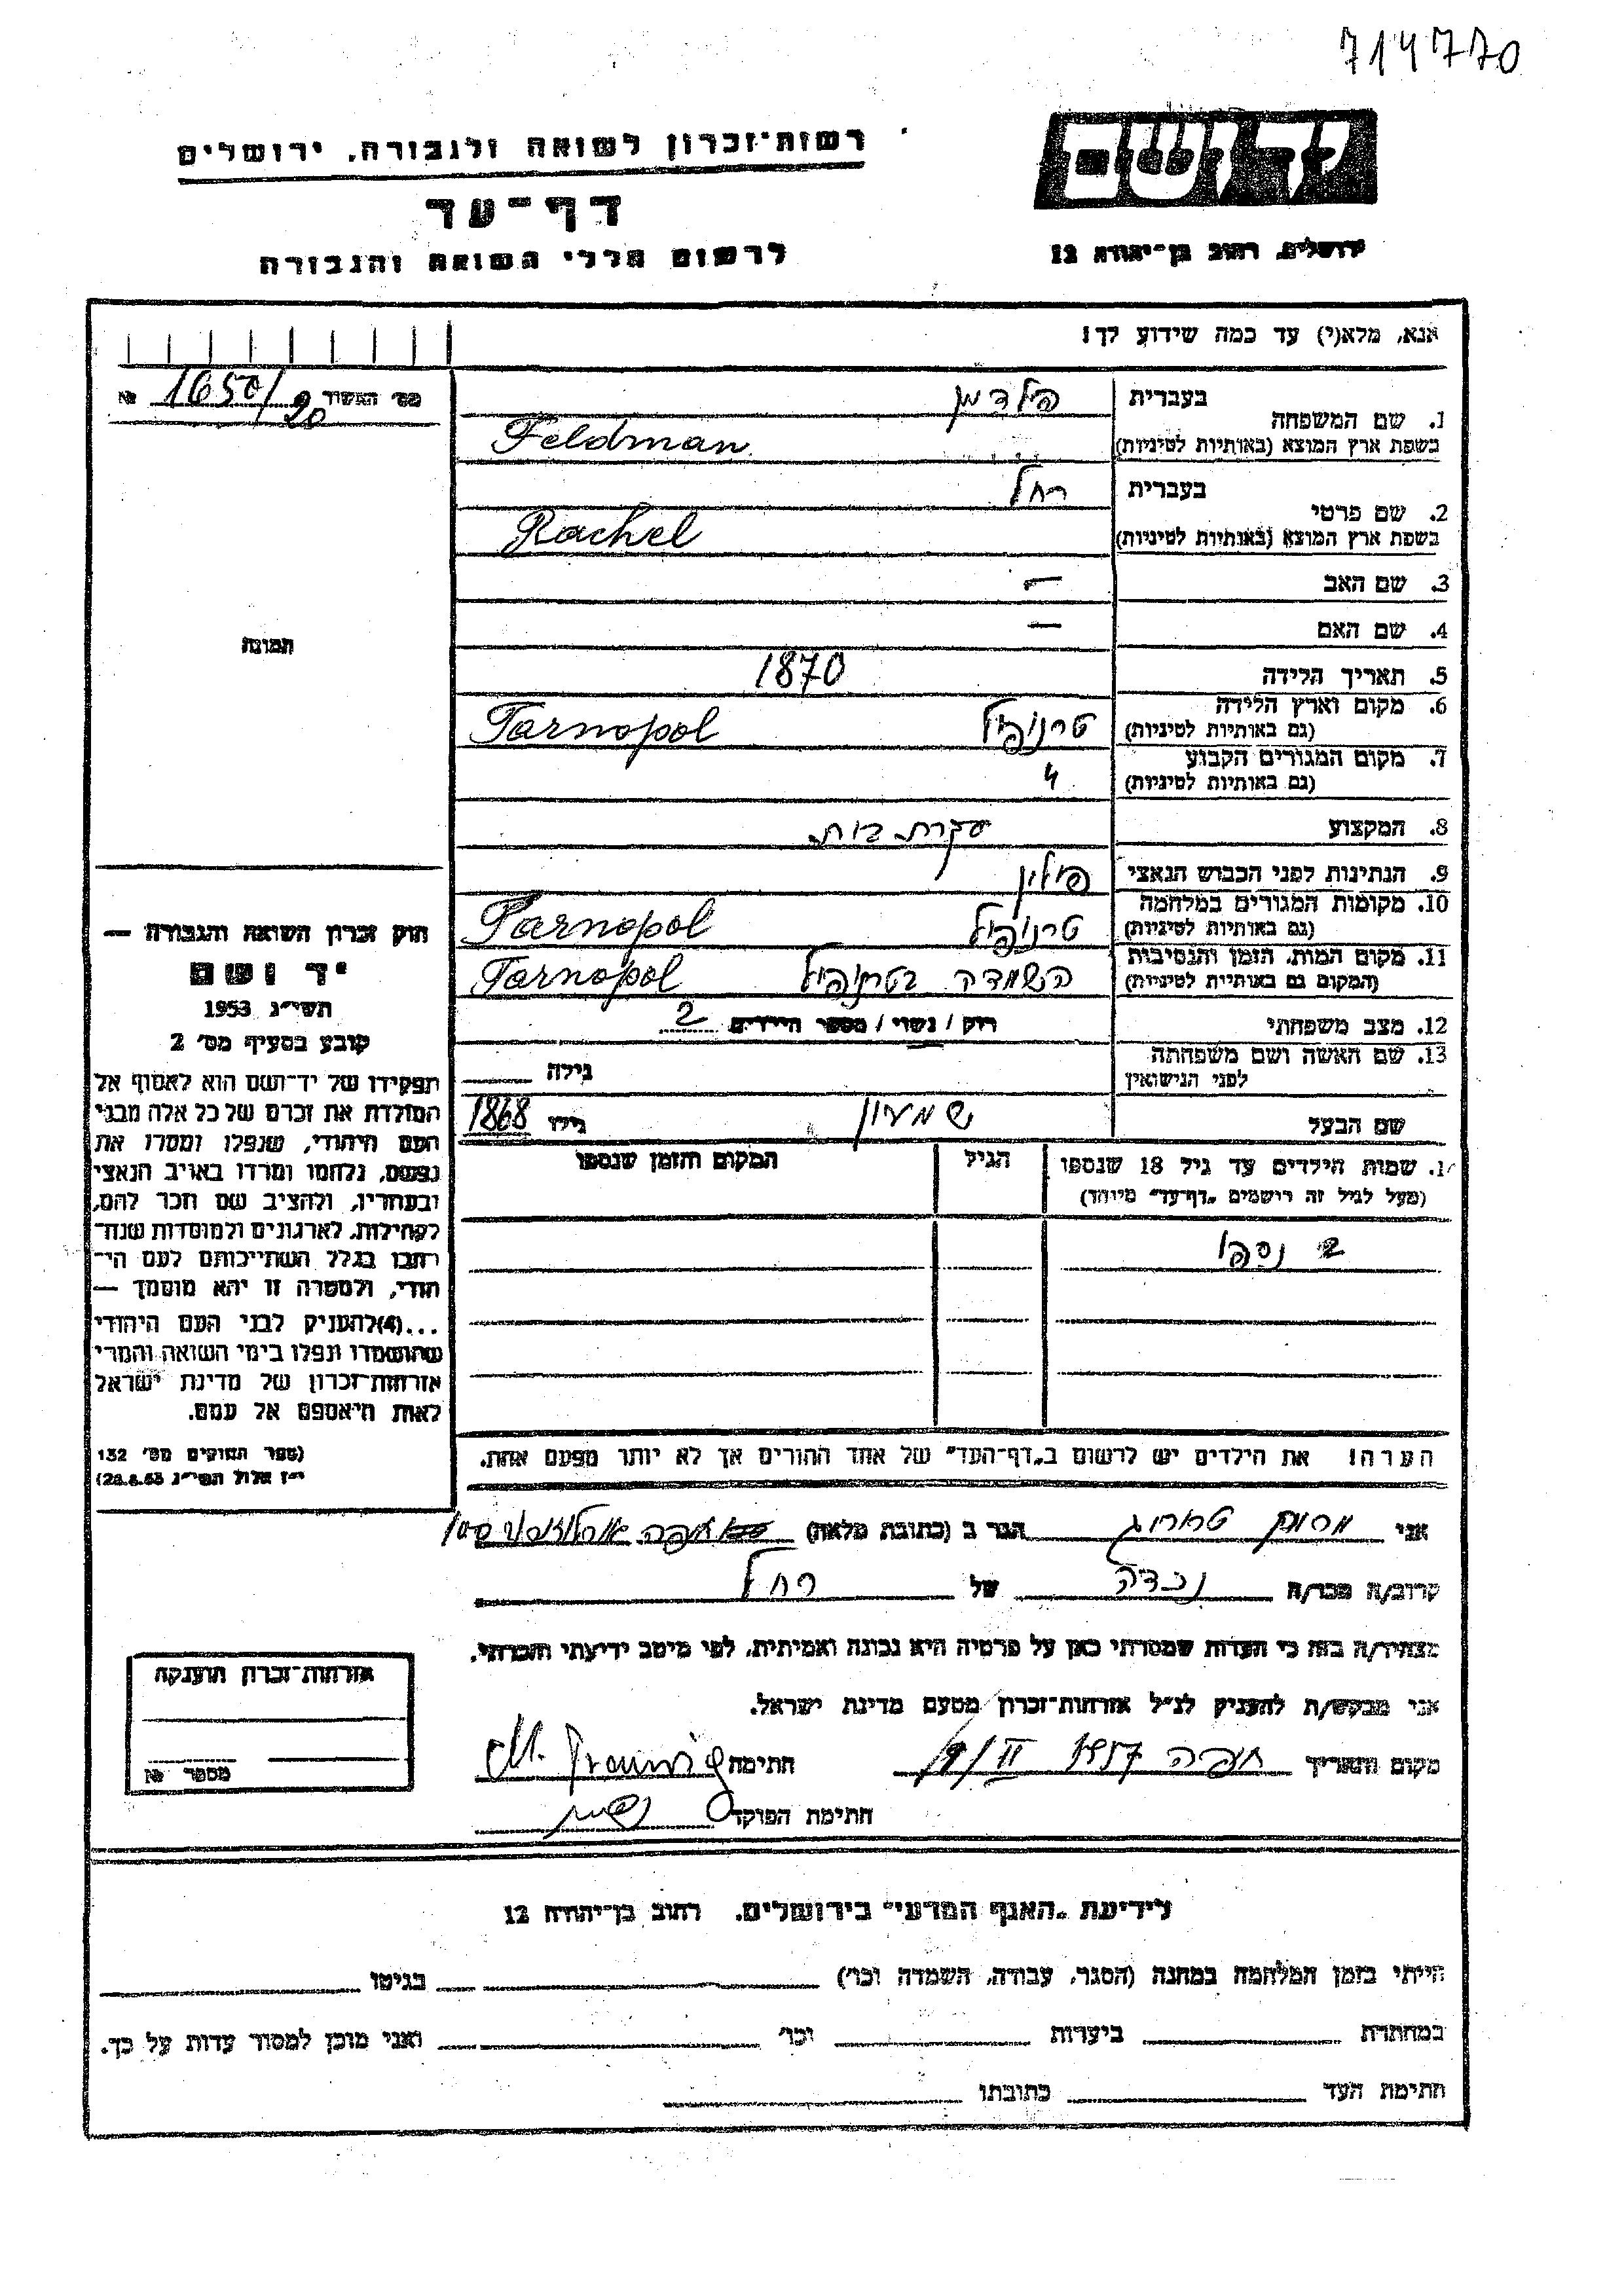 714770
יד ושם
ירושלים, רחוב בן־יהודה 12
רשות־זכרון לשואה ולגבורה, ירושלים
דף־עד
לרשום חללי השואה והגבורה
אנא, מלא(י) עד כמה שידוע לך!
מס׳ האשור 1650/20 №
תמונה
1. שם המשפחה בעברית פילדמן
בשפת ארץ המוצא (באותיות לטיניות) Feldman
2. שם פרטי בעברית רחל
בשפת ארץ המוצא (באותיות לטיניות) Rachel
3. שם האב —
4. שם האם —
5. תאריך הלידה 1870
6. מקום וארץ הלידה (גם באותיות לטיניות) טרנופול Tarnopol
7. מקום המגורים הקבוע (גם באותיות לטיניות) "
8. המקצוע עקרת בית
9. הנתינות לפני הכבוש הנאצי פולין
10. מקומות המגורים במלחמה (גם באותיות לטיניות) טרנופול Tarnopol
11. מקום המות, הזמן והנסיבות (המקום גם באותיות לטיניות) השמדה בטרנופול Tarnopol
12. מצב משפחתי רוק / נשוי / מספר הילדים 2
13. שם האשה ושם משפחתה לפני הנישואין גילה
שם הבעל שמעון גילו 1868
שמות הילדים עד גיל 18 שנספו
(מעל לגיל זה רישמים „דף־עד״ מיוחד)
הגיל
המקום והזמן שנספו
2 נספו
הערה! את הילדים יש לרשום ב„דף־העד״ של אחד ההורים אך לא יותר מפעם אחת.
חוק זכרון השואה והגבורה —
יד ושם
תשי״ג 1953
קובע בסעיף מס׳ 2
תפקידו של יד־ושם הוא לאסוף אל
המולדת את זכרם של כל אלה מבני
העם היהודי, שנפלו ומסרו את
נפשם, נלחמו ומרדו באויב הנאצי
ובעוזריו, ולהציב שם וזכר להם,
לקהילות, לארגונים ולמוסדות שנח־
רבו בגלל השתייכותם לעם הי־
הודי, ולמטרה זו יהא מוסמך —
...(4) להעניק לבני העם היהודי
שהושמדו ונפלו בימי השואה והמרי
אזרחות־זכרון של מדינת ישראל
לאות היאספם אל עמם.
(ספר החוקים מס׳ 132
י״ז אלול תשי״ג 28.8.53)
אני הגר ב (כתובת מלאה) חיפה
קרוב/ה מכר/ה נכדה של רחל
מצהיר/ה בזה כי העדות שמסרתי כאן על פרטיה היא נכונה ואמיתית, לפי מיטב ידיעתי והכרתי.
אני מבקש/ת להעניק לנ״ל אזרחות־זכרון מטעם מדינת ישראל.
מקום ותאריך חיפה 1957 II חתימה
חתימת הפוקד
אזרחות־זכרון הוענקה
מספר №
לידיעת „האגף המדעי״ בירושלים. רחוב בן־יהודה 12
הייתי בזמן המלחמה במחנה (הסגר, עבודה, השמדה וכו׳) בגיטו
במחתרת ביערות וכו׳ ואני מוכן למסור עדות על כך.
חתימת העד כתובתו